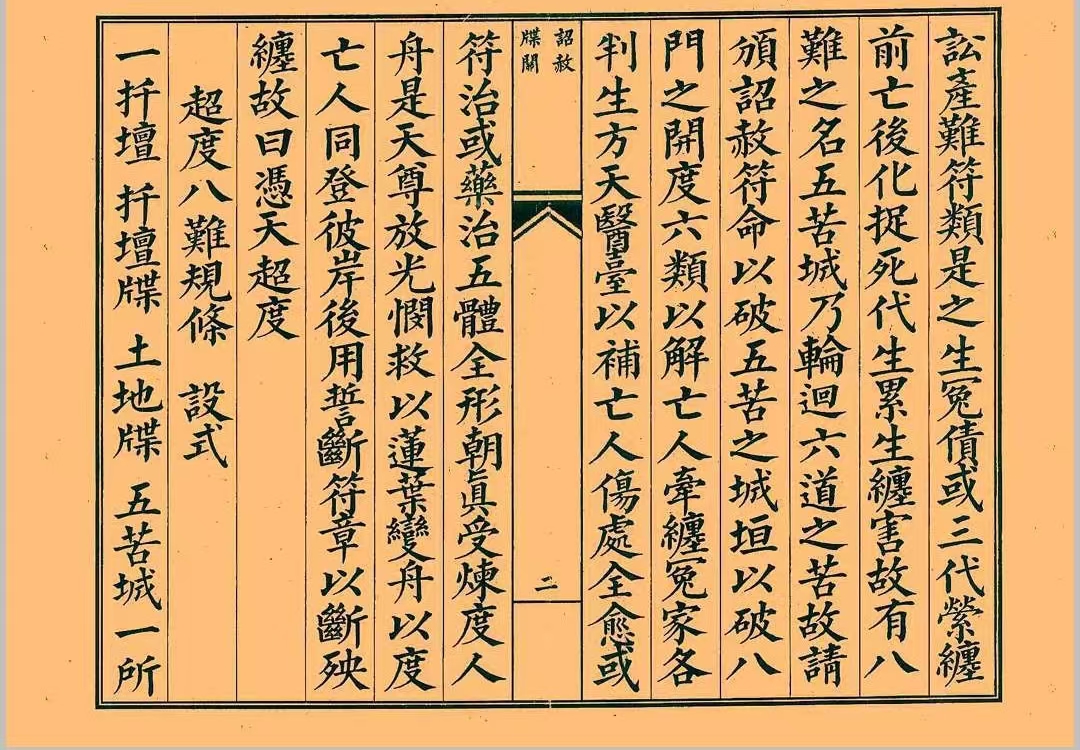 訟產難符類是之生冤債或三代縈纏
前亡後化捉死代生累生纏害故有八
難之名五苦城乃輪迴六道之苦故請
頒詔赦符命以破五苦之城垣以破八
門之開度六類以解亡人牽纏冤家各
判生方天醫臺以補亡人傷處全愈或
詔赦
牒關
二
符治或藥治五體全形朝真受煉度人
舟是天尊放光憫救以蓮葉變舟以度
亡人同登彼岸後用誓斷符章以斷殃
纏故曰憑天超度
超度八難規條 設式
一扦壇 扦壇牒 土地牒 五苦城一所